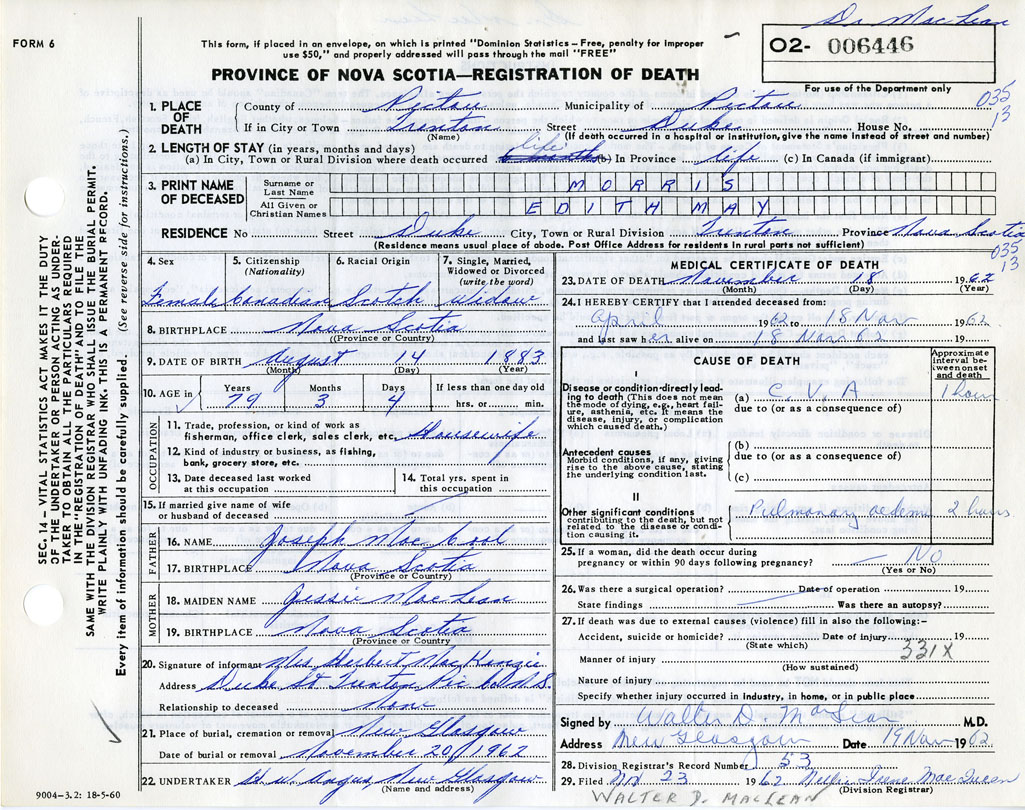 Dr MacLean
FORM 6
This form, if placed in an envelope, on which is printed "Dominion Statistics—Free, penalty for improper
use $50," and properly addressed will pass through the mail "FREE"
O2- 006446
For use of the Department only
PROVINCE OF NOVA SCOTIA—REGISTRATION OF DEATH
035
13
1. PLACE OF DEATH
County of Pictou Municipality of Pictou
If in City or Town Trenton Street Duke House No.
(Name) (If death occurred in a hospital or institution, give the name instead of street and number)
2. LENGTH OF STAY (in years, months and days)
(a) In City, Town or Rural Division where death occurred life (b) In Province life (c) In Canada (if immigrant)
3. PRINT NAME OF DECEASED
Surname or Last Name MORRIS
All Given or Christian Names EDITH MAY
RESIDENCE No Street Duke City, Town or Rural Division Trenton Province Nova Scotia
(Residence means usual place of abode. Post Office Address for residents in rural parts not sufficient)
035
13
SEC. 14 — VITAL STATISTICS ACT MAKES IT THE DUTY
OF THE UNDERTAKER OR PERSON ACTING AS UNDER-
TAKER TO OBTAIN ALL THE PARTICULARS REQUIRED
IN THE "REGISTRATION OF DEATH" AND TO FILE THE
SAME WITH THE DIVISION REGISTRAR WHO SHALL ISSUE THE BURIAL PERMIT.
WRITE PLAINLY WITH UNFADING INK. THIS IS A PERMANENT RECORD.
Every item of information should be carefully supplied. (See reverse side for instructions.)
4. Sex Female
5. Citizenship (Nationality) Canadian
6. Racial Origin Scotch
7. Single, Married, Widowed or Divorced (write the word) Widow
8. BIRTHPLACE Nova Scotia
(Province or Country)
9. DATE OF BIRTH August 14 1883
(Month) (Day) (Year)
10. AGE in Years 79 Months 3 Days 4 If less than one day old hrs. or min.
OCCUPATION
11. Trade, profession, or kind of work as
fisherman, office clerk, sales clerk, etc. Housewife
12. Kind of industry or business, as fishing,
bank, grocery store, etc.
13. Date deceased last worked
at this occupation
14. Total yrs. spent in
this occupation
15. If married give name of wife
or husband of deceased
FATHER
16. NAME Joseph MacCool
17. BIRTHPLACE Nova Scotia
(Province or Country)
MOTHER
18. MAIDEN NAME Jessie MacLean
19. BIRTHPLACE Nova Scotia
(Province or Country)
20. Signature of informant Mrs Herbert MacKenzie
Address Duke St Trenton Pic Co N.S.
Relationship to deceased None
21. Place of burial, cremation or removal New Glasgow
Date of burial or removal November 20, 1962
22. UNDERTAKER H. W. Angus, New Glasgow
(Name and address)
9004-3.2: 18-5-60
MEDICAL CERTIFICATE OF DEATH
23. DATE OF DEATH November 18 1962
(Month) (Day) (Year)
24. I HEREBY CERTIFY that I attended deceased from:
April 1962 to 18 Nov 1962
and last saw her alive on 18 Nov 62 19
CAUSE OF DEATH
Approximate interval between onset and death
I
Disease or condition directly lead-
ing to death (This does not mean
the mode of dying, e.g., heart failure,
asthenia, etc. It means the
disease, injury, or complication
which caused death.)
(a) C. V. A 1 hour
due to (or as a consequence of)
Antecedent causes
Morbid conditions, if any, giving
rise to the above cause, stating
the underlying condition last.
(b)
due to (or as a consequence of)
(c)
II
Other significant conditions
contributing to the death, but not
related to the disease or condi-
tion causing it.
Pulmonary oedema 2 hours
25. If a woman, did the death occur during
pregnancy or within 90 days following pregnancy? No
(Yes or No)
26. Was there a surgical operation? Date of operation 19
State findings Was there an autopsy?
27. If death was due to external causes (violence) fill in also the following:-
Accident, suicide or homicide? Date of injury 19
(State which)
331X
Manner of injury
(How sustained)
Nature of injury
Specify whether injury occurred in industry, in home, or in public place
Signed by Walter D. MacLean M.D.
Address New Glasgow Date 19 Nov 1962
28. Division Registrar's Record Number 53
29. Filed Nov 23 1962 Nellie Irene MacQueen
(Division Registrar)
WALTER D. MACLEAN